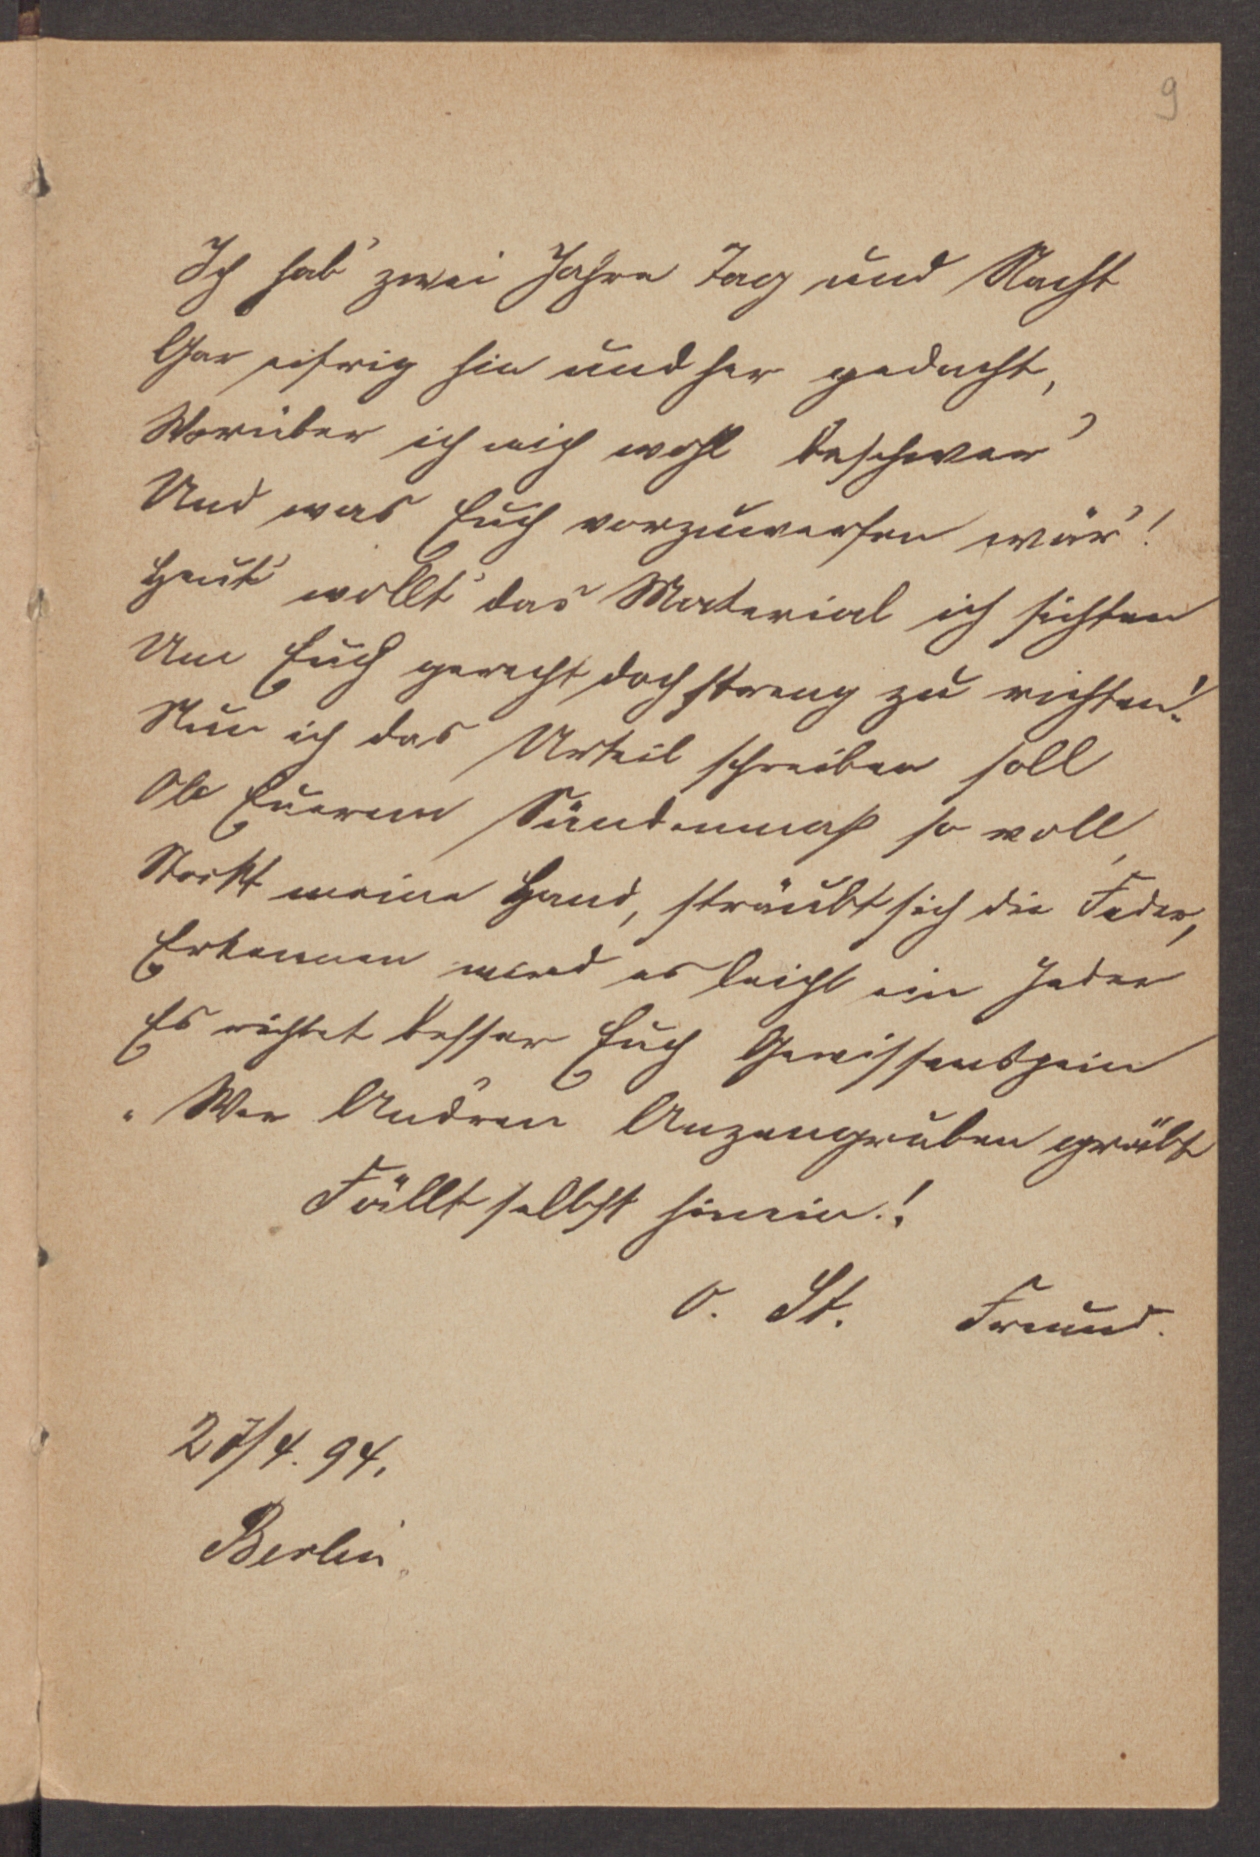 9
Ich hab' zwei Jahre Tag und Nacht
Gar eifrig hin und her gedacht,
Worüber ich mich wohl beschwer'
Und was Euch vorzuwerfen wär'!
Heut' wollt' das Material ich sichten
Um Euch gerecht doch streng zu richten!
Nun ich das Urteil schreiben soll
Ob Euerem Sündenmaß so voll,
Stockt meine Hand, sträubt sich die Feder,
Erkennen wird es leicht ein Jeder
Es richtet besser Euch Gewissenspein
"Wer Andren Anzengruben gräbt
Fällt selbst hinein!
O. St. Freund.
27/4. 94.
Berlin.